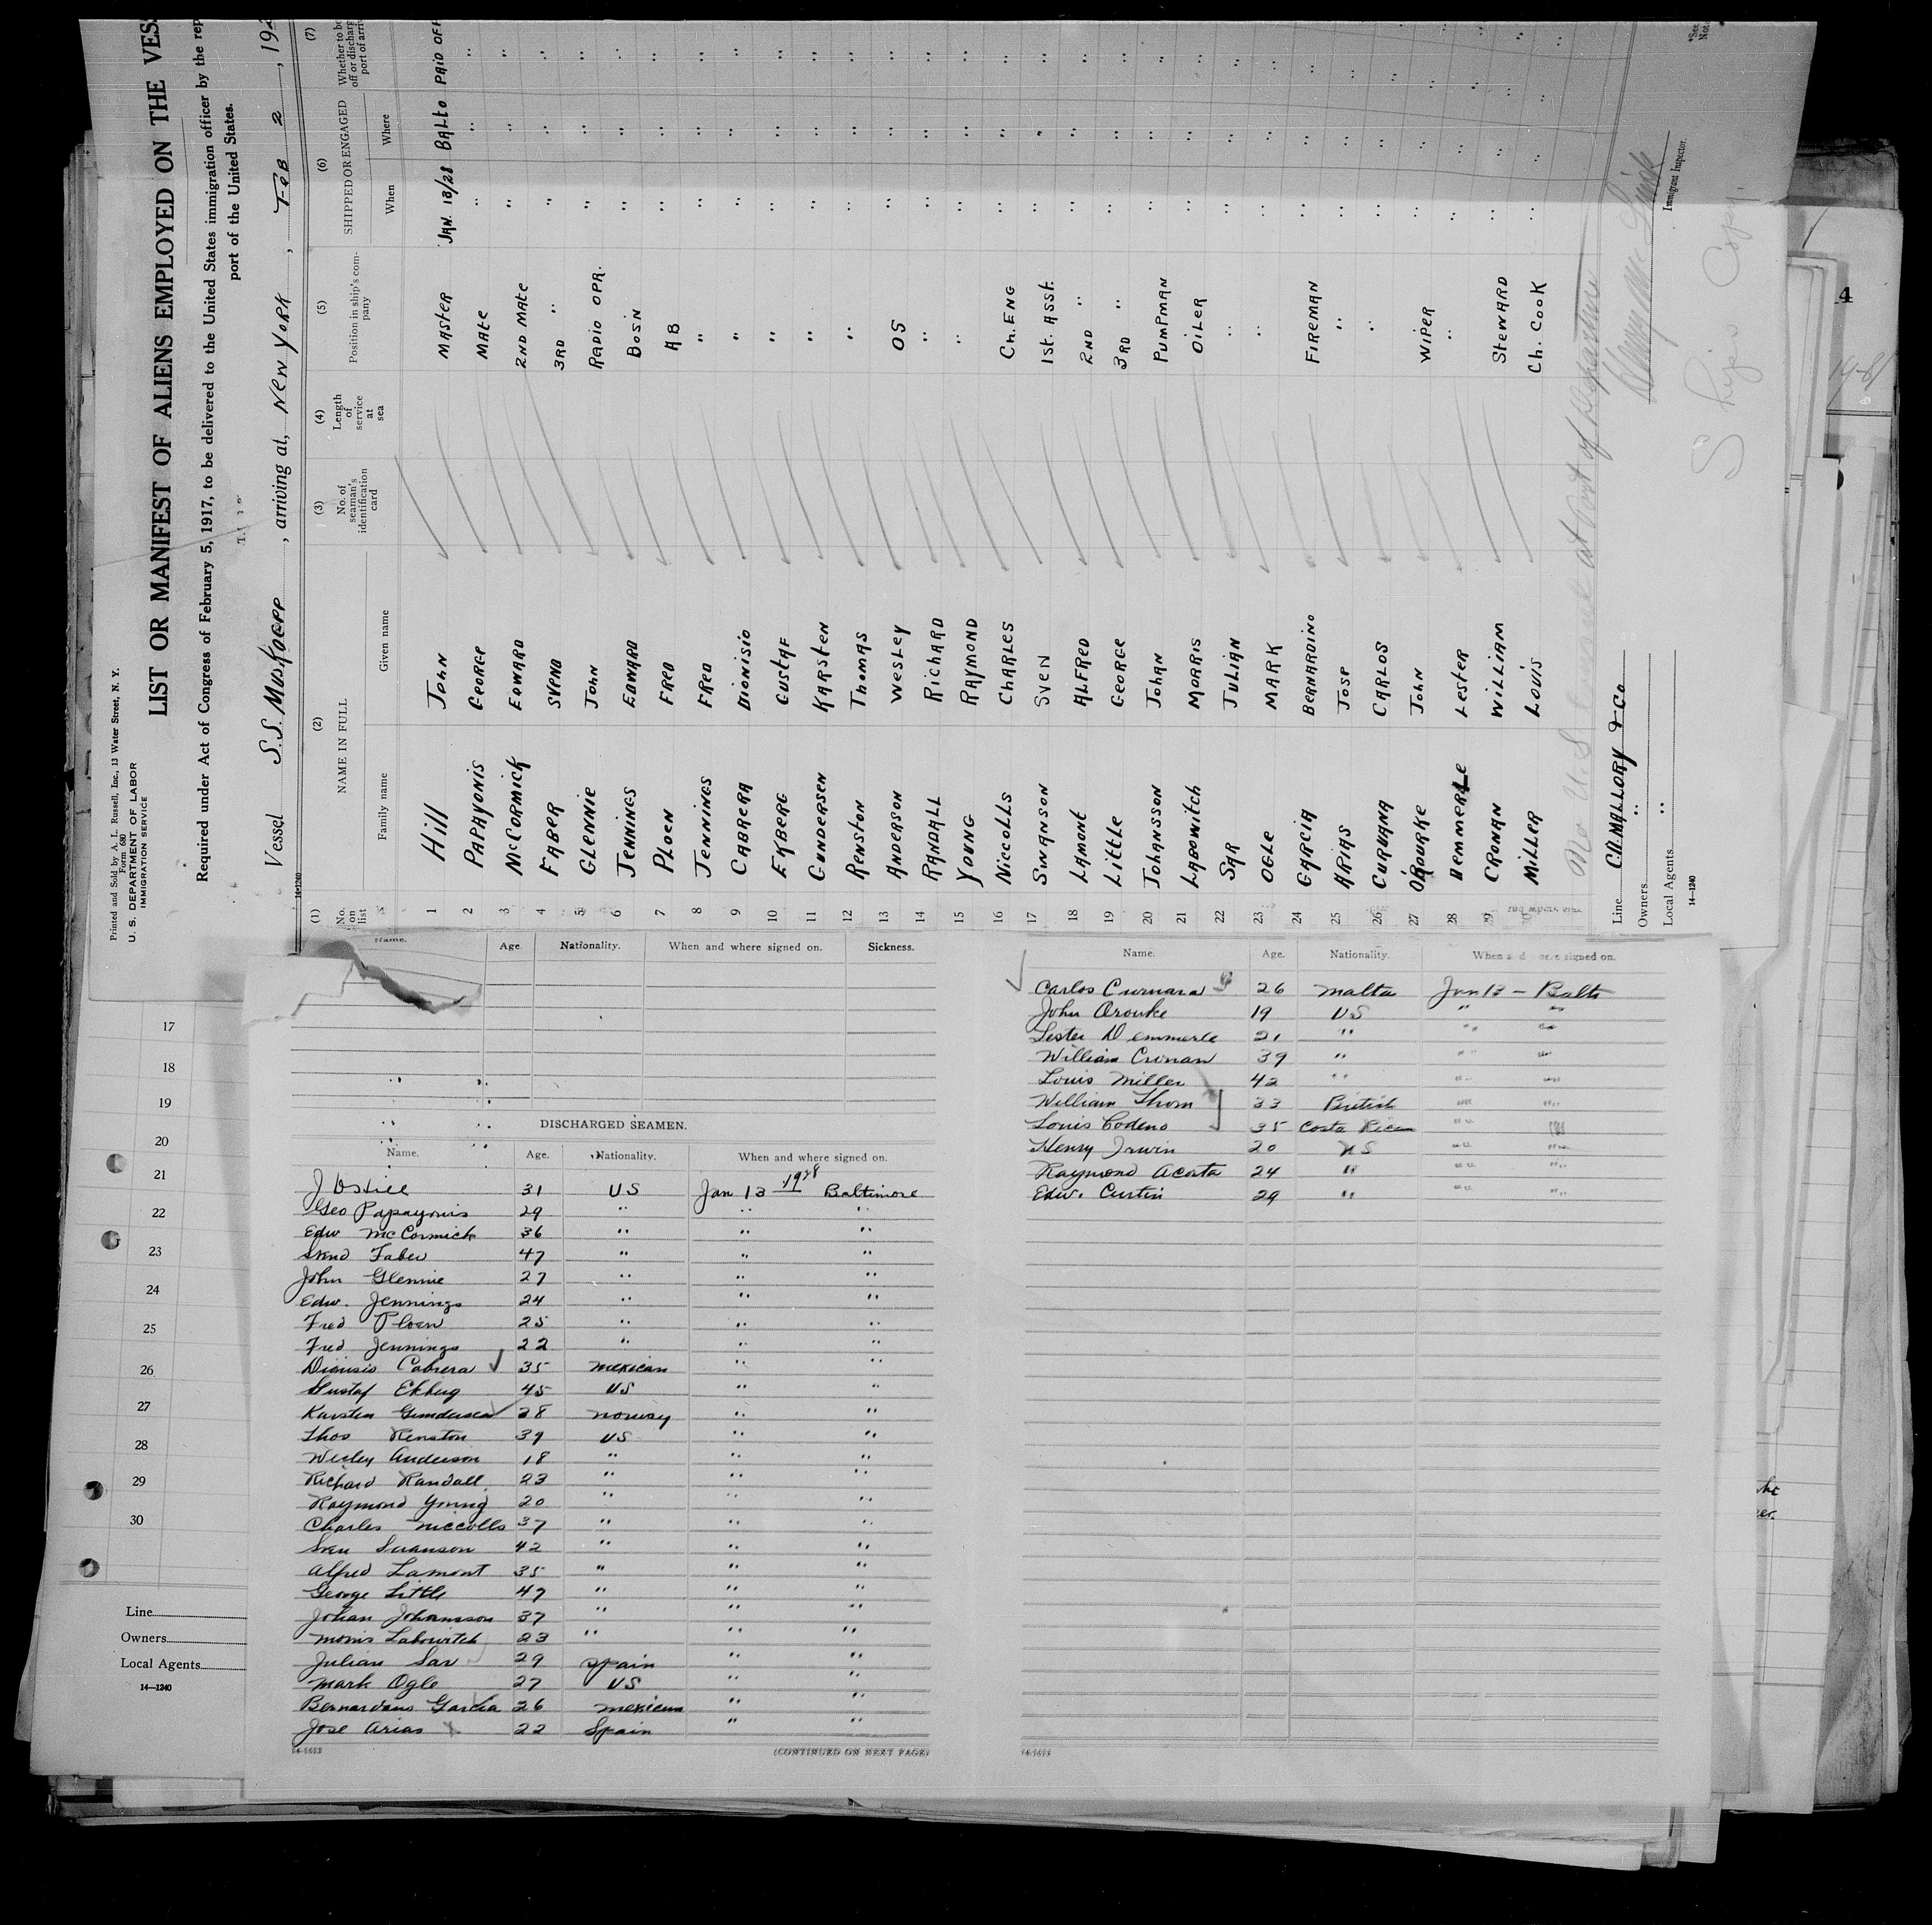 Printed and Sold by A. L. Russell, Inc., 13 Water Street, N. Y.
Form 680
U. S. DEPARTMENT OF LABOR
IMMIGRATION SERVICE
LIST OR MANIFEST OF ALIENS EMPLOYED ON THE VES
Required under Act of Congress of February 5, 1917, to be delivered to the United States immigration officer by the rep
port of the United States.
Vessel S.S. Muskogee, arriving at, New York, Feb 2, 192
14-1240
(1) (2) (3) (4) (5) (6) (7)
No. on list NAME IN FULL No. of seaman's identification card Length of service at sea Position in ship's company SHIPPED OR ENGAGED Whether to be off or discharg port of arriv
Family name Given name When Where
1 Hill John MASTER JAN. 13/28 BALTO PAID OFF
2 PAPAYONIS George MATE " " "
3 McCormick EDWARD 2ND MATE " " "
4 FABER SVEND 3RD " " " "
5 GLENNIE John RADIO OPR. " " "
6 JENNINGS EDWARD BOSN " " "
7 PLOEN FRED AB " " "
8 JENNINGS FRED " " " "
9 CABRERA DIONISIO " " " "
10 EKBERG GUSTAF " " " "
11 GUNDERSEN KARSTEN " " " "
12 RENSTON THOMAS " " " "
13 ANDERSON WESLEY OS " " "
14 RANDALL RICHARD " " " "
15 YOUNG RAYMOND " " " "
16 NICCOLLS CHARLES Ch. ENG " " "
17 SWANSON SVEN 1st. ASST. " " "
18 LAMONT ALFRED 2ND " " " "
19 Little GEORGE 3RD " " " "
20 JOHANSSON JOHAN PUMPMAN " " "
21 LABOWITCH MORRIS OILER " " "
22 SAR JULIAN " " " "
23 OGLE MARK " " " "
24 GARCIA BERNARDINO FIREMAN " " "
25 ARIAS JOSE " " " "
26 CURVANA CARLOS " " " "
27 O'ROURKE John WIPER " " "
28 DEMMERLE LESTER " " " "
29 CRONAN WILLIAM STEWARD " " "
MILLER LOUIS Ch. COOK " " "
No U.S. Consul at Port of departure
Line C.D. MALLORY & Co
Owners " "
Local Agents "
14-1240
Immigrant Inspector.
Ship's Copy
17
18
19
20
21
22
23
24
25
26
27
28
29
30
Line
Owners
Local Agents
14-1240
Name. Age. Nationality. When and where signed on. Sickness.
DISCHARGED SEAMEN.
Name. Age. Nationality. When and where signed on.
J D Hill 31 US Jan 13 1928 Baltimore
Geo Papayonis 29 " " "
Edw McCormick 36 " " "
Svend Faber 47 " " "
John Glennie 27 " " "
Edw. Jennings 24 " " "
Fred Ploen 25 " " "
Fred Jennings 22 " " "
Dionisio Cabrera 35 Mexican " "
Gustaf Ekberg 45 US " "
Karsten Gundersen 38 Norway " "
Thos Renston 39 US " "
Wesley Anderson 18 " " "
Richard Randall 23 " " "
Raymond Young 20 " " "
Charles Niccolls 37 " " "
Sven Swanson 42 " " "
Alfred Lamont 35 " " "
George Little 47 " " "
Johan Johansson 37 " " "
Morris Labowitch 23 " " "
Julian Sar 29 Spain " "
Mark Ogle 27 US " "
Bernardano Garcia 26 Mexican " "
Jose Arias 22 Spain " "
14-1613 (CONTINUED ON NEXT PAGE)
Name. Age. Nationality. When and where signed on.
Carlos Curvara 26 Malta Jan 13 - Balto
John Orourke 19 US " "
Lester Demmerle 21 " " "
William Cronan 39 " " "
Louis Miller 42 " " "
William Thom 33 British " "
Louis Codeno 35 Costa Rican " "
Henry Irwin 20 US " "
Raymond Acosta 24 " " "
Edw. Curtin 29 " " "
14-1613